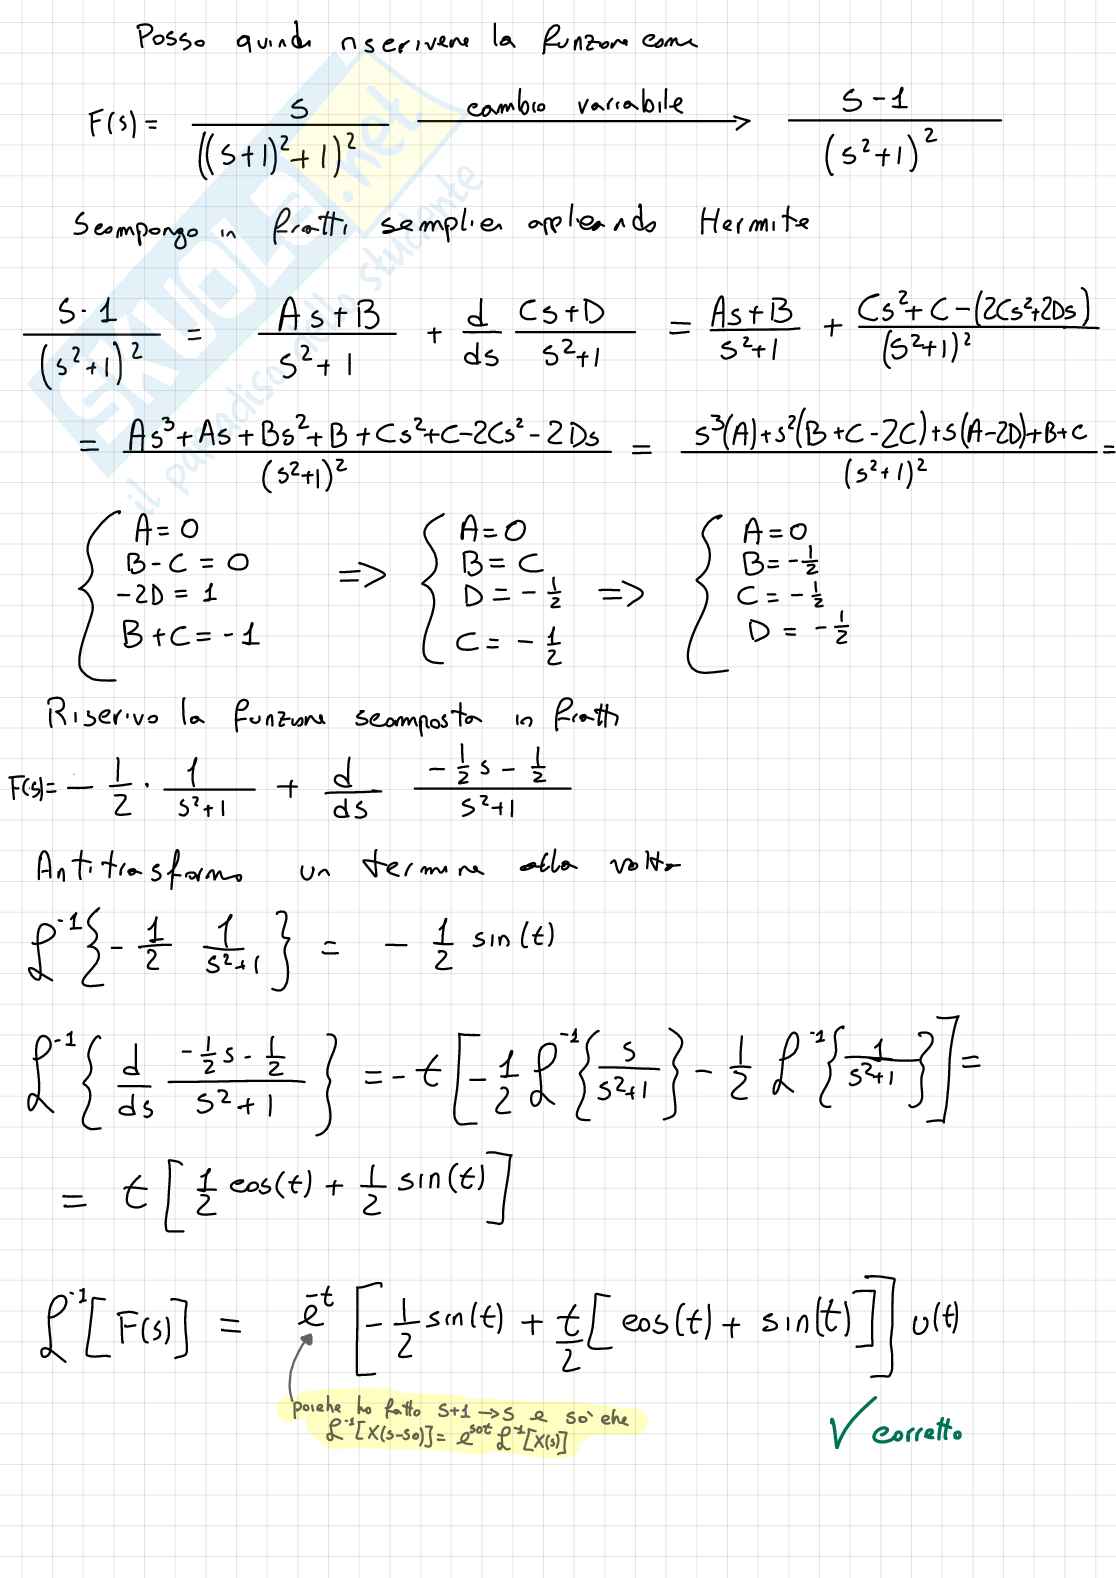 Posso quindi riscrivere la funzione come
F(s) = s / ((s+1)²+1)² cambio variabile → s-1 / (s²+1)²
Scompongo in fratti semplici applicando Hermite
s-1 / (s²+1)² = As+B / s²+1 + d/ds Cs+D / s²+1 = As+B / s²+1 + Cs²+C-(2Cs²+2Ds) / (s²+1)²
= As³+As+Bs²+B+Cs²+C-2Cs²-2Ds / (s²+1)² = s³(A)+s²(B+C-2C)+s(A-2D)+B+C / (s²+1)² =
{ A=0 { A=0 { A=0
B-C=0 => B=C => B=-1/2
-2D=1 D=-1/2 C=-1/2
B+C=-1 C=-1/2 D=-1/2
Riscrivo la funzione scomposta in fratti
F(s)= - 1/2 · 1/s²+1 + d/ds -1/2 s - 1/2 / s²+1
Antitrasformo un termine alla volta
ℒ⁻¹{ - 1/2 1/s²+1 } = - 1/2 sin(t)
ℒ⁻¹{ d/ds -1/2 s - 1/2 / s²+1 } = -t [ -1/2 ℒ⁻¹{ s/s²+1 } - 1/2 ℒ⁻¹{ 1/s²+1 } ] =
= t [ 1/2 cos(t) + 1/2 sin(t) ]
ℒ⁻¹[F(s)] = e⁻ᵗ [ -1/2 sin(t) + t/2 [ cos(t) + sin(t) ] ] u(t)
poiche ho fatto s+1 → s e so' che
ℒ⁻¹[X(s-so)] = e^sot ℒ⁻¹[X(s)]
√ corretto
SKUOLA.net
il paradiso dello studente